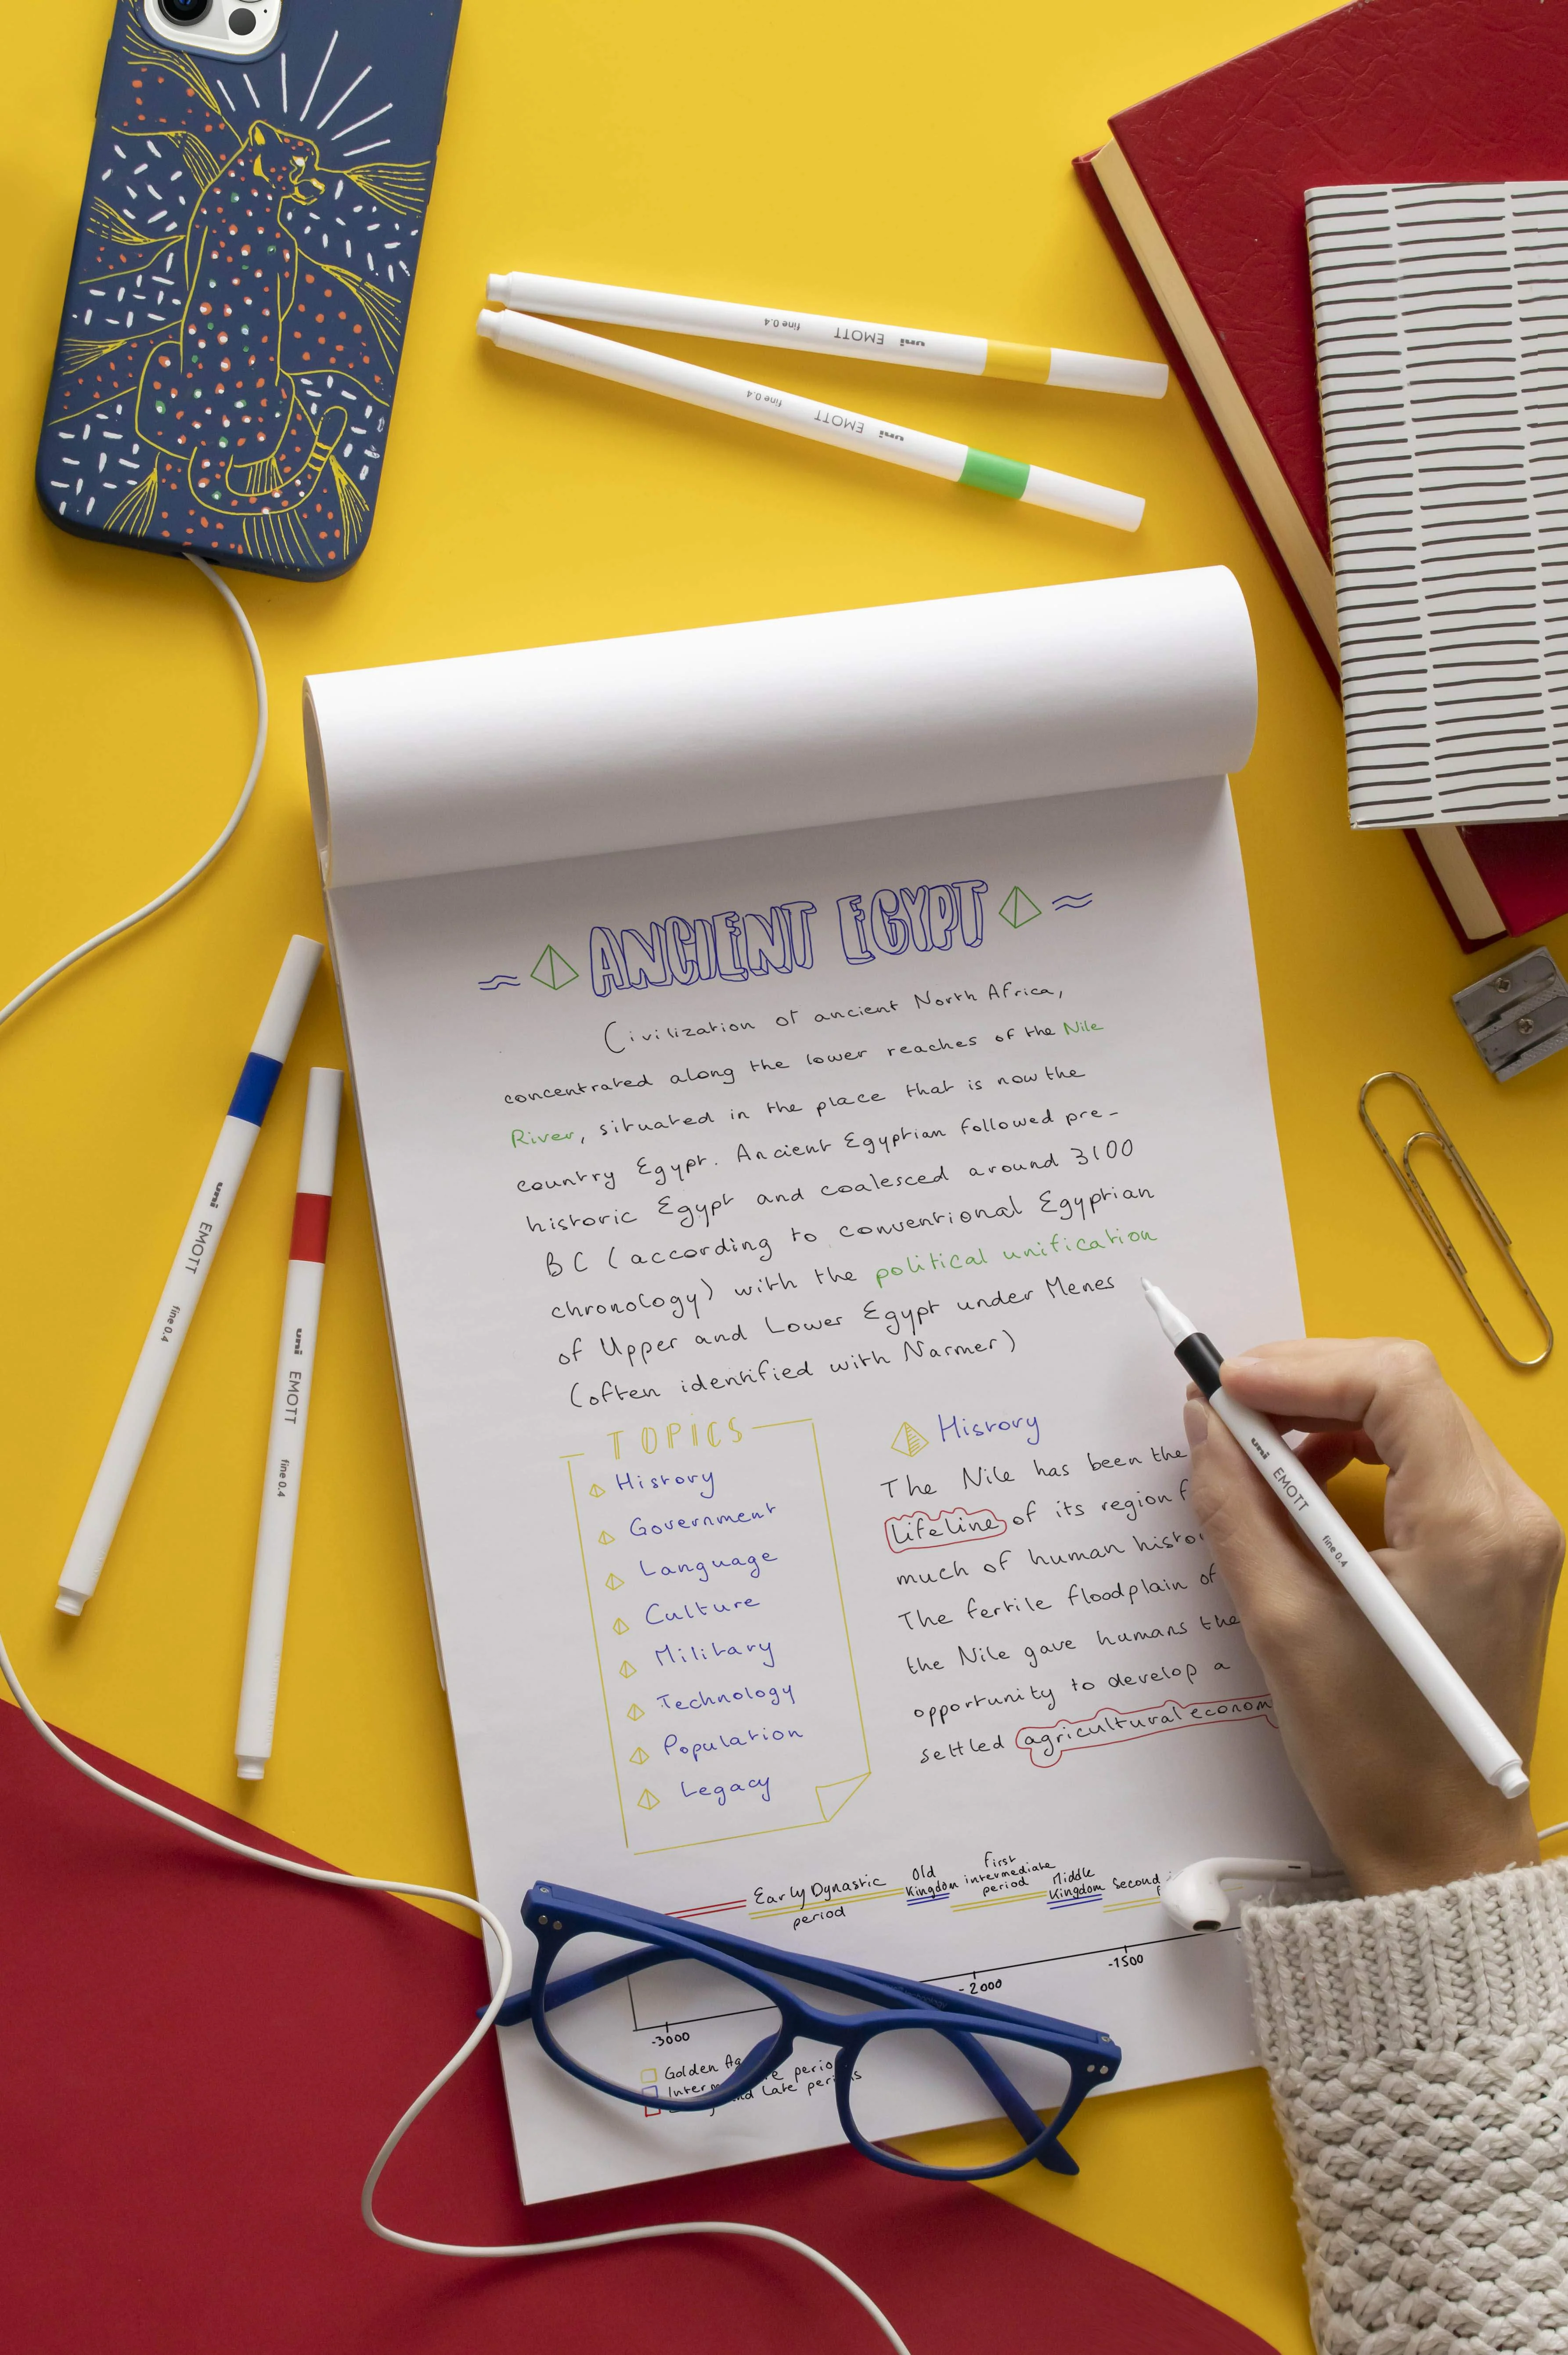 uni EMOTT fine 0.4
uni EMOTT fine 0.4
≈ ANCIENT EGYPT ≈
Civilization of ancient North Africa,
concentrated along the lower reaches of the Nile
River, situated in the place that is now the
country Egypt. Ancient Egyptian followed pre-
historic Egypt and coalesced around 3100
BC (according to conventional Egyptian
chronology) with the political unification
of Upper and Lower Egypt under Menes
(often identified with Narmer)
uni EMOTT fine 0.4
uni EMOTT fine 0.4
TOPiCS
History
Government
Language
Culture
Military
Technology
Population
Legacy
History
The Nile has been the
lifeline of its region
much of human
The fertile floodplain of
the Nile gave humans the
opportunity to develop a
settled agricultural
uni EMOTT fine 0.4
Early Dynastic
period
Old
Kingdom
First
intermediate
period
Middle
Kingdom
Second
-3000
-2000
-1500
Golden
and Late periods